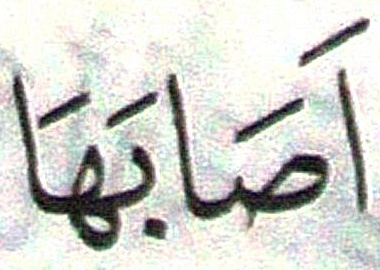 اَصَابَهَا